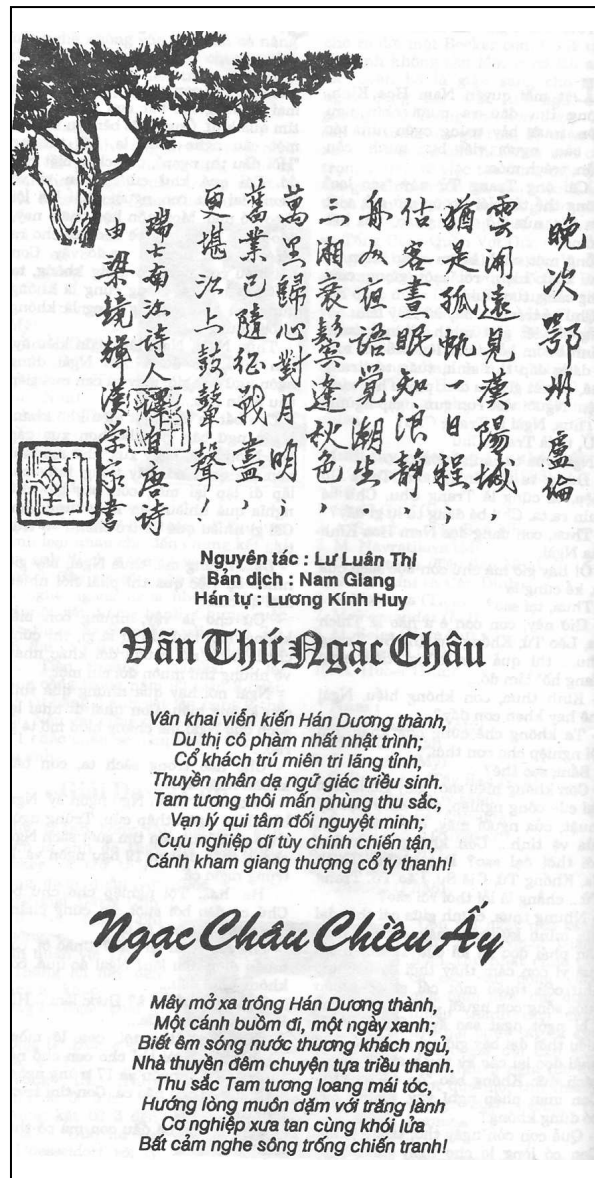 晚次鄂州 盧倫
雲開遠見漢陽城
猶是孤帆一日程；
估客晝眠知浪靜
舟人夜語覺潮生
三湘衰鬢逢秋色，
萬里歸心對月明
舊業已隨征戰盡
更堪江上鼓鼙聲
瑞士南江诗人譯自唐诗
由梁境輝漢学家書
Nguyên tác : Lư Luân Thi
Bản dịch : Nam Giang
Hán tự : Lương Kính Huy
Văn Thứ Ngạc Châu
Vân khai viễn kiến Hán Dương thành,
Du thị cô phàm nhất nhật trình;
Cổ khách trú miên tri lãng tỉnh,
Thuyền nhân dạ ngữ giác triều sinh.
Tam tương thôi mấn phùng thu sắc,
Vạn lý qui tâm đối nguyệt minh;
Cựu nghiệp dĩ tùy chinh chiến tận,
Cánh kham giang thượng cổ ty thanh!
Ngạc Châu Chiều Ấy
Mây mở xa trông Hán Dương thành,
Một cánh buồm đi, một ngày xanh;
Biết êm sóng nước thương khách ngủ,
Nhà thuyền đêm chuyện tựa triều thanh.
Thu sắc Tam tương loang mái tóc,
Hướng lòng muôn dặm với trăng lành
Cơ nghiệp xưa tan cùng khói lửa
Bất cảm nghe sông trống chiến tranh!